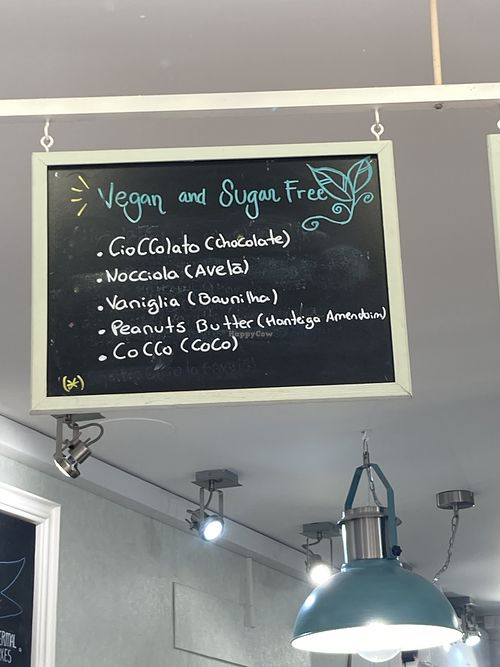 Vegan and Sugar Free
• CioCColato (chocolate)
• Nocciola (Avelã)
• Vaniglia (Baunilha)
• Peanuts Butter (Manteiga Amendoim)
• CoCCo (CoCo)
(*)
HappyCow